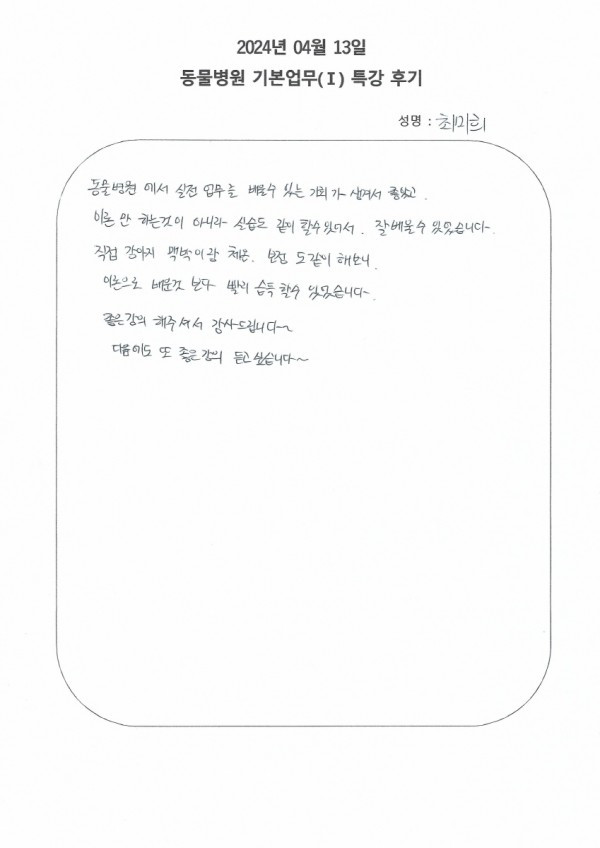 2024년 04월 13일
동물병원 기본업무(I) 특강 후기
성명 : 최미희
동물병원 에서 실전 업무를 배울수 있는 기회가 생겨서 좋았고.
이론 만 하는것이 아니라 실습도 같이 할수있어서. 잘배울수 있었습니다.
직접 강아지 맥박이랑 체온. 보정 도같이 해보니.
이론으로 배운것 보다 빨리 습득 할수 있었습니다.
좋은강의 해주셔서 감사드립니다~
다음에도 또 좋은강의 듣고 싶습니다~